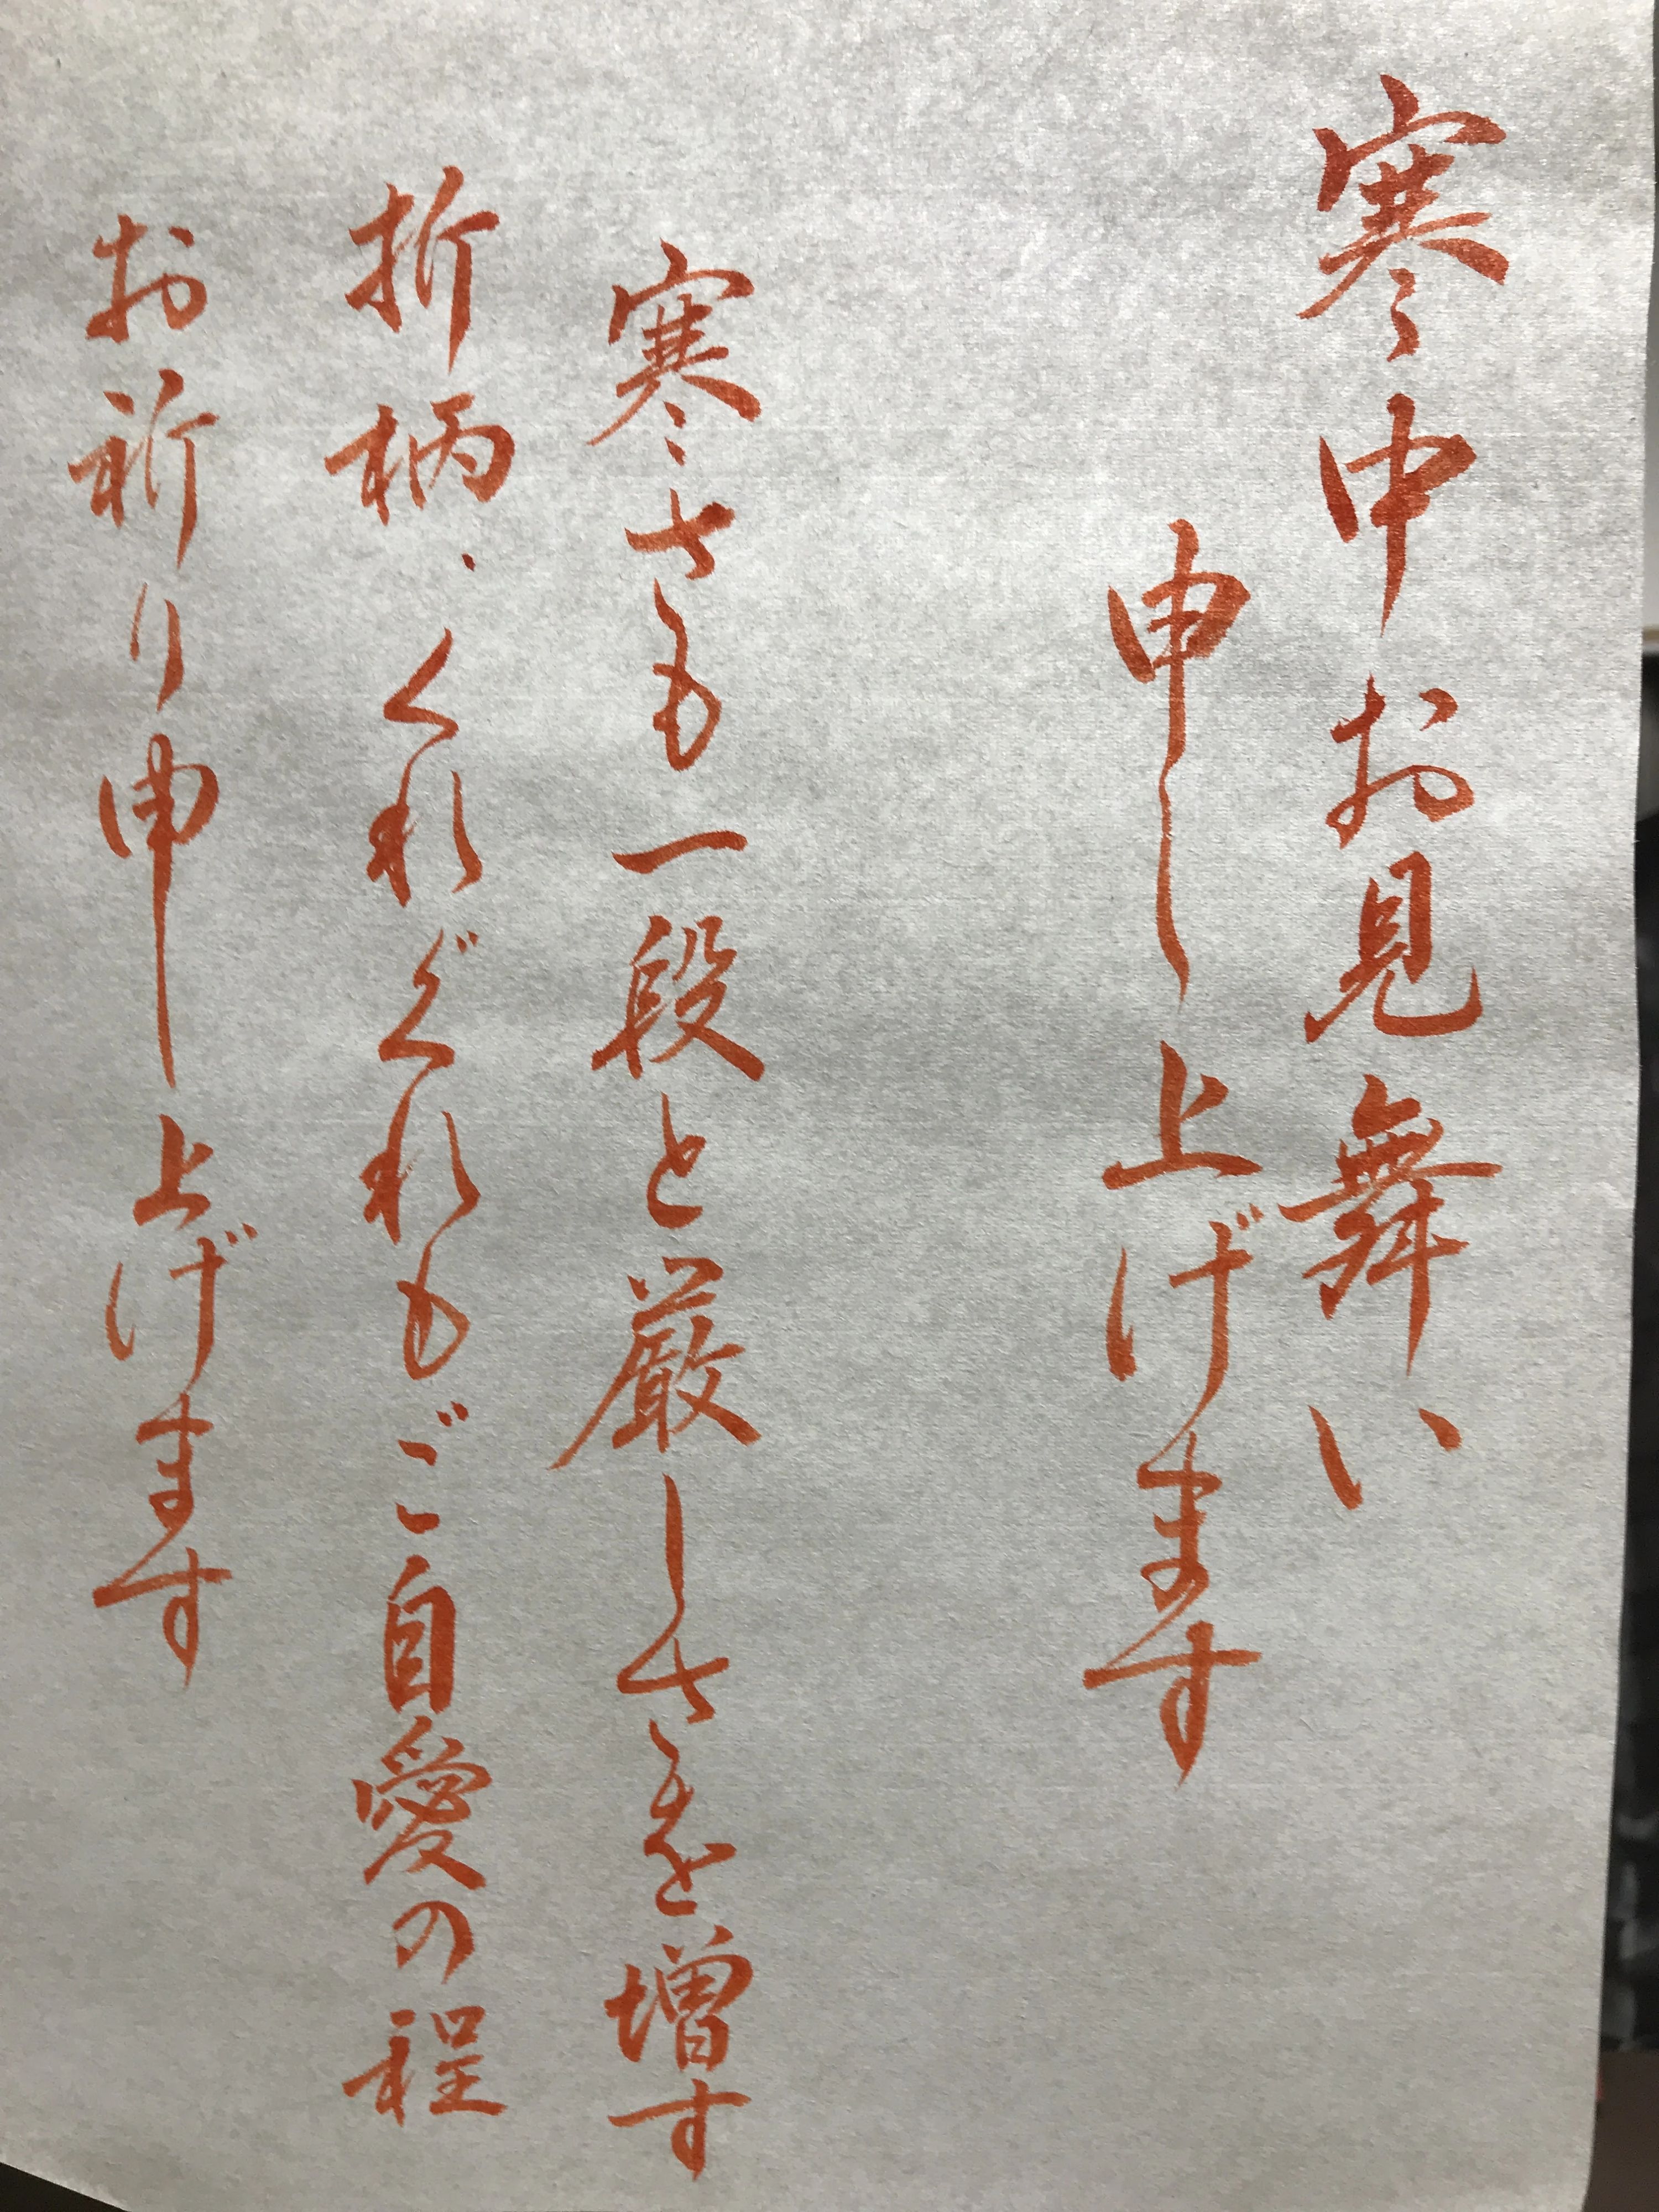 寒中お見舞い
申し上げます
寒さも一段と厳しさを増す
折柄、くれぐれもご自愛の程
お祈り申し上げます